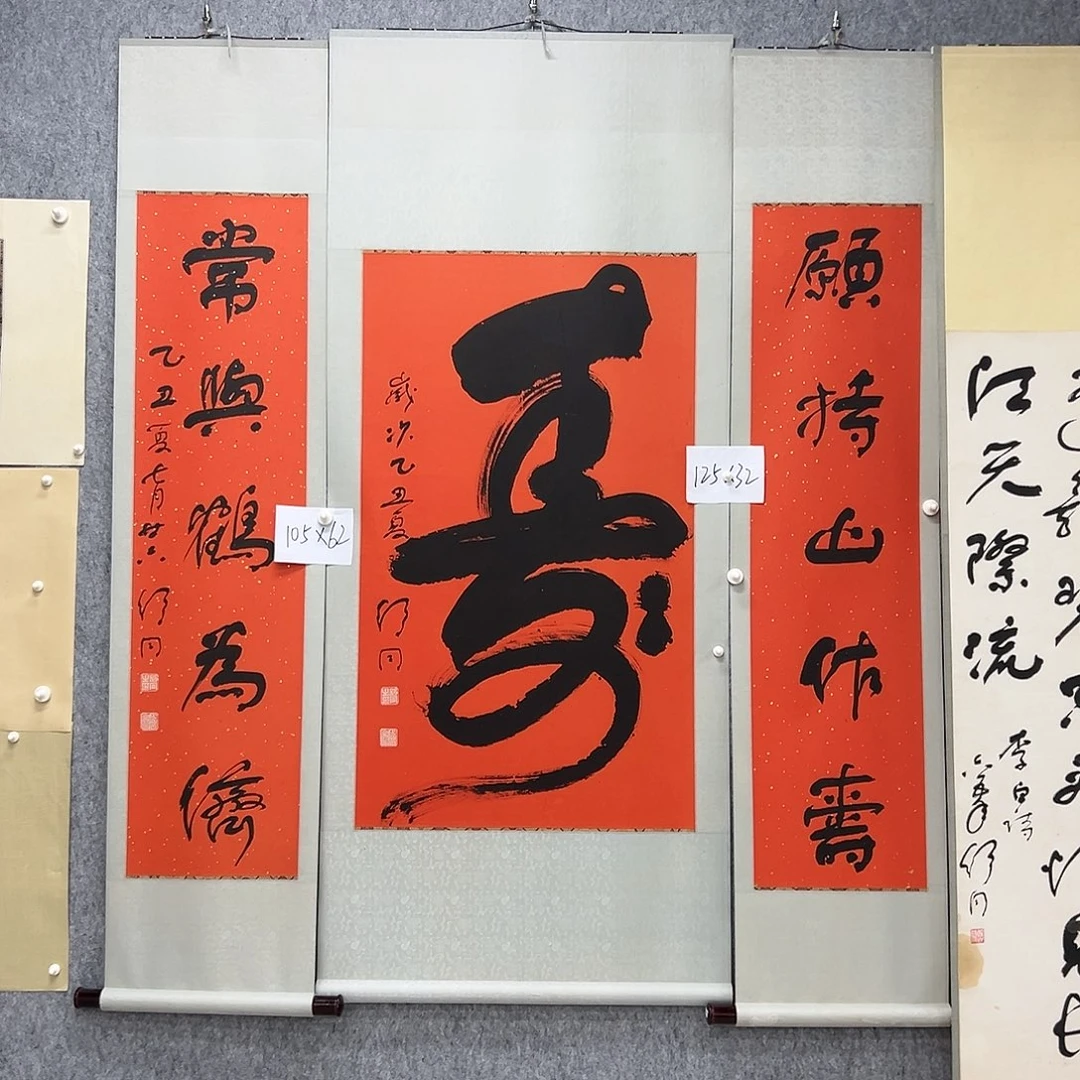 願持山作壽
壽
歲次乙丑夏
舒同
常與鶴為儔
乙丑夏七月
舒同
105×62
125×32
江天際流
李白詩
舒同